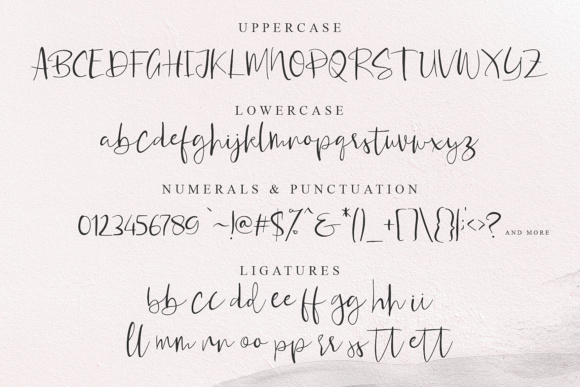 UPPERCASE
ABCEDFGHIJKLMNOPQRSTUVWXYZ
LOWERCASE
abcdefghijklmnopqrstuvwxyz
NUMERALS & PUNCTUATION
0123456789`~!@#$%^&*()_+[]\{}|:;'<>? AND MORE
LIGATURES
bb cc dd ee ff gg hh ii
ll mm nn oo pp rr ss tt ett